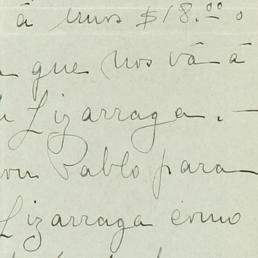 á unos $18.00 o
que nos vá á
Lizarraga. —
Pablo para
Lizarraga como